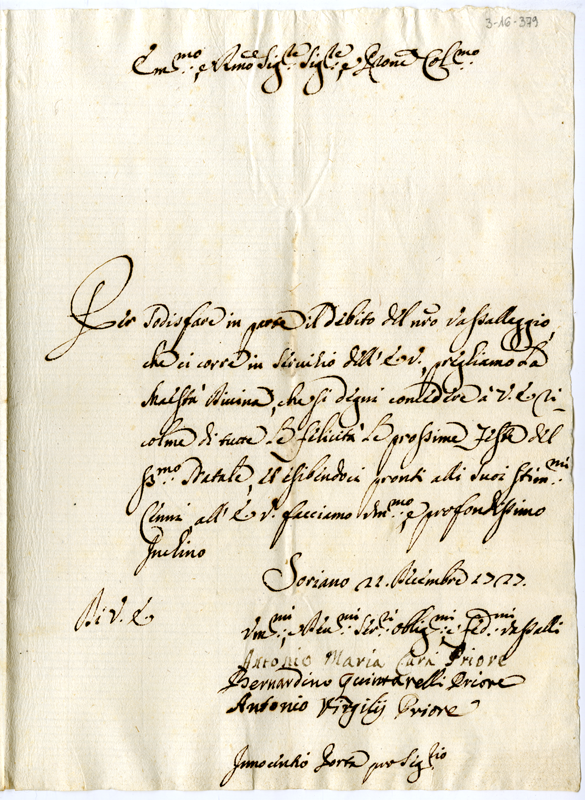 3-16-379
Em.mo e Rmo Sig.re Sig.re e Prone Col.mo
Per sodisfare in parte il debito del nro vassallaggio,
che ci corre in servitio dell' E.V., preghiamo La
Maestà Divina, che si degni concedere à V.E. ri-
colme di tutte Le felicità Le prossime Feste del
SS.mo Natale, et esibendoci pronti alli suoi stim.mi
Cenni, all' E.V. facciamo Um.mo, e profondissimo
Inchino
Soriano 22. Dicembre 1727.
Di V.E.
Um.mi, e Rev.mi Ser.ri Oblig.mi e Fed.mi Vassalli
Antonio Maria Cara Priore
Bernardino Quintarelli Priore
Antonio Virgilij Priore
Innocentio Porta pro Sig.rio